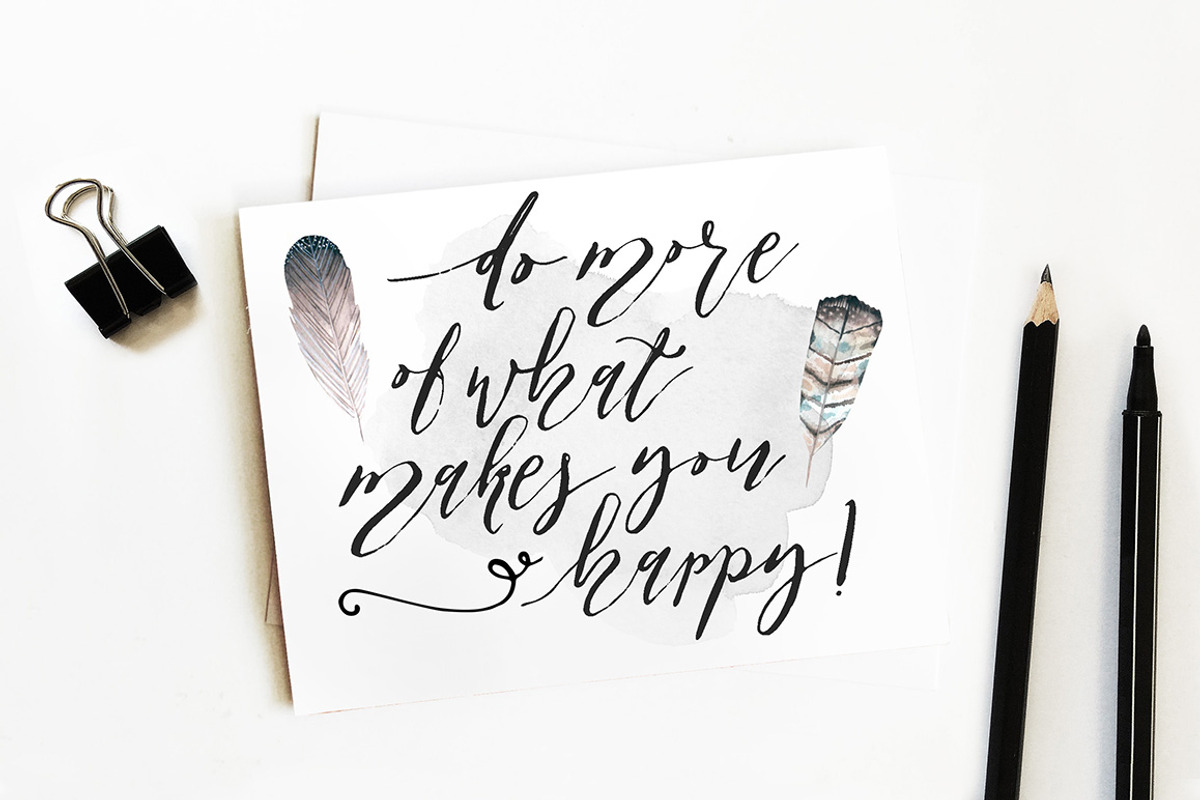 do more
of what
makes you
happy!